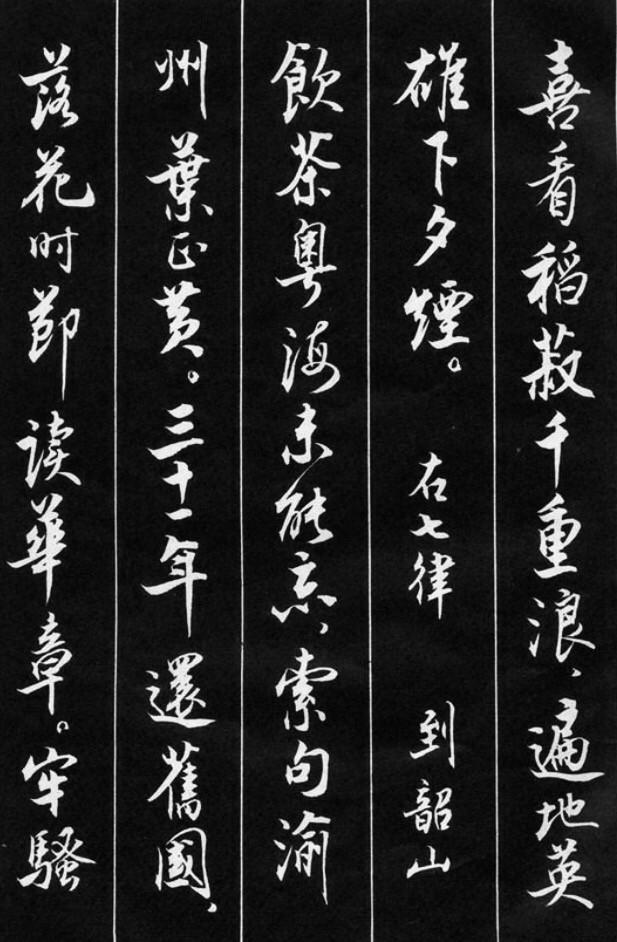 喜看稻菽千重浪、遍地英
雄下夕煙。 右七律 到韶山
飲茶粵海未能忘、索句渝
州葉正黃。三十一年還舊國、
落花时節读華章。牢騷